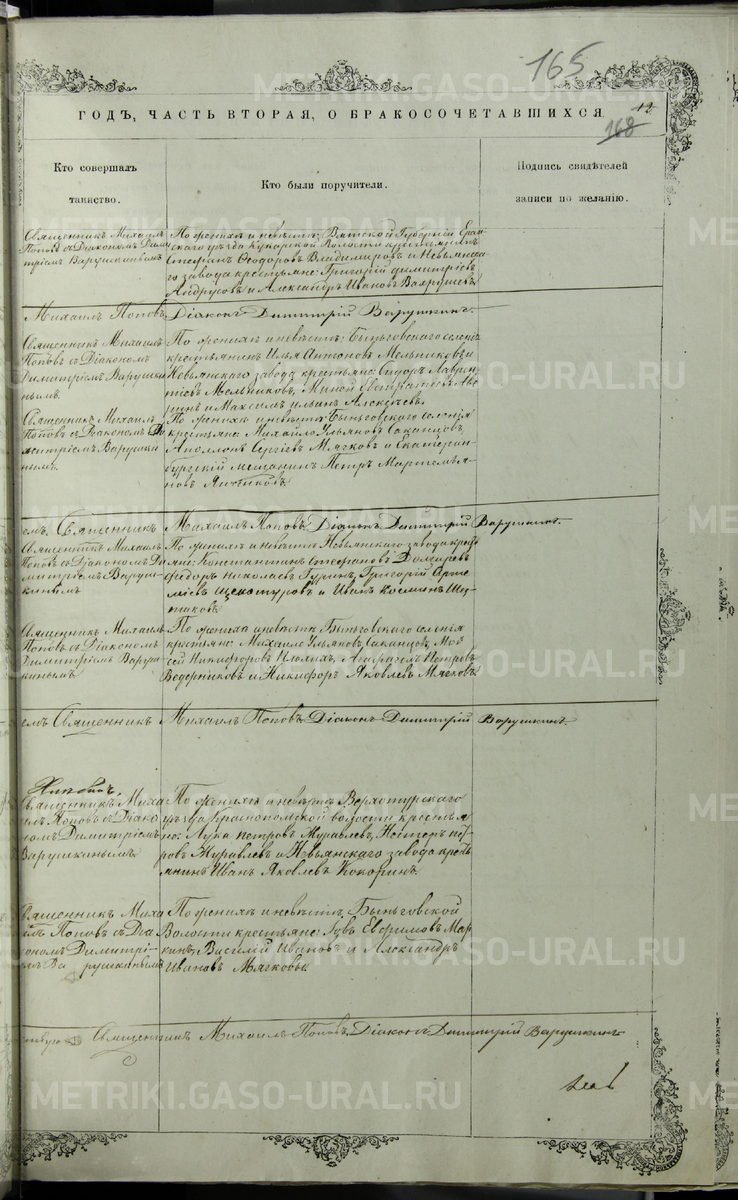 165
ГОДЪ, ЧАСТЬ ВТОРАЯ, О БРАКОСОЧЕТАВШИХСЯ.
168
Кто совершалъ таинство.
Кто были поручители.
Подпись свидѣтелей записи по желанію.
Священникъ Михаилъ
Поповъ съ Діакономъ Дими
тріемъ Варушкинымъ
По женихѣ и невѣстѣ: Вятской Губерніи Яран
скаго уѣзда Кукарской Волости крестьянинъ
Стефанъ Ѳеодоровъ Владиміровъ и Невьянска
го завода крестьяне: Григорій Димитріевъ
Андрусовъ и Александръ Ивановъ Вахрушевъ.
Михаилъ Поповъ, Діаконъ Димитрій Варушкинъ.
Священникъ Михаилъ
Поповъ съ Діакономъ
Димитріемъ Варушки
нымъ.
По женихѣ и невѣстѣ: Быньговскаго селенія
крестьянинъ Илья Антоновъ Мельниковъ и
Невьянскаго завода крестьяне: Сидоръ Лаврен
тіевъ Мельниковъ,
и Максимъ Ильинъ Алексѣевъ.
Священникъ Михаилъ
Поповъ съ Діакономъ Ди
митріемъ Варушки
нымъ.
По женихѣ и невѣстѣ: Быньговскаго селенія
крестьяне Михайло Ульяновъ Саканцовъ,
Аполлонъ Сергіевъ Мягковъ и Екатерин
бургскій мещанинъ Петръ Мартемья
новъ
емъ, Священникъ Михаилъ Поповъ, Діаконъ Димитрій Варушкинъ.
Священникъ Михаилъ
Поповъ съ Діакономъ Ди
митріемъ Варуш
кинымъ
По женихѣ и невѣстѣ Невьянскаго завода крест
яне: Константинъ Стефановъ
Ѳедоръ Николаевъ Гуринъ, Григорій Арте
міевъ Щекотуровъ и Иванъ Косминъ
Священникъ Михаилъ
Поповъ съ Діакономъ
Димитріемъ Вару
кинымъ
По женихѣ и невѣстѣ Быньговскаго селенія
крестьяне Михайло Ульяновъ Саканцовъ, Мой
сей Никифоровъ Петровъ
Ведерниковъ и Никифоръ Яковлевъ Мягковъ.
емъ Священникъ Михаилъ Поповъ Діаконъ Димитрій Варушкинъ.
Священникъ Миха
илъ Поповъ съ Діако
номъ Димитріемъ
Варушкинымъ
По женихѣ и невѣстѣ Верхотурскаго
уѣзда Краснопольской волости крестья
не: Лука Петровъ Журавлевъ, Нестеръ пет
ровъ Журавлевъ и Невьянскаго завода крест
янинъ Иванъ Яковлевъ Кокоринъ.
Священникъ Миха
илъ Поповъ съ Діа
кономъ Димитрі-
емъ Варушкинымъ
По женихѣ и невѣстѣ, Быньговской
Волости крестьяне: Евфимовъ Мар
кинъ, Василій Ивановъ и Александръ
Ивановъ Мягковы.
Священникъ Михаилъ Поповъ, Діаконъ Димитрій Варушкинъ.
METRIKI.GASO-URAL.RU